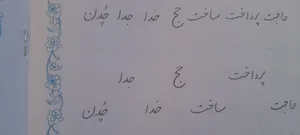 حاجت پرداخت ساخت حج خدا جدا چُدن
پرداخت حج جدا
حاجت ساخت خدا چُدن